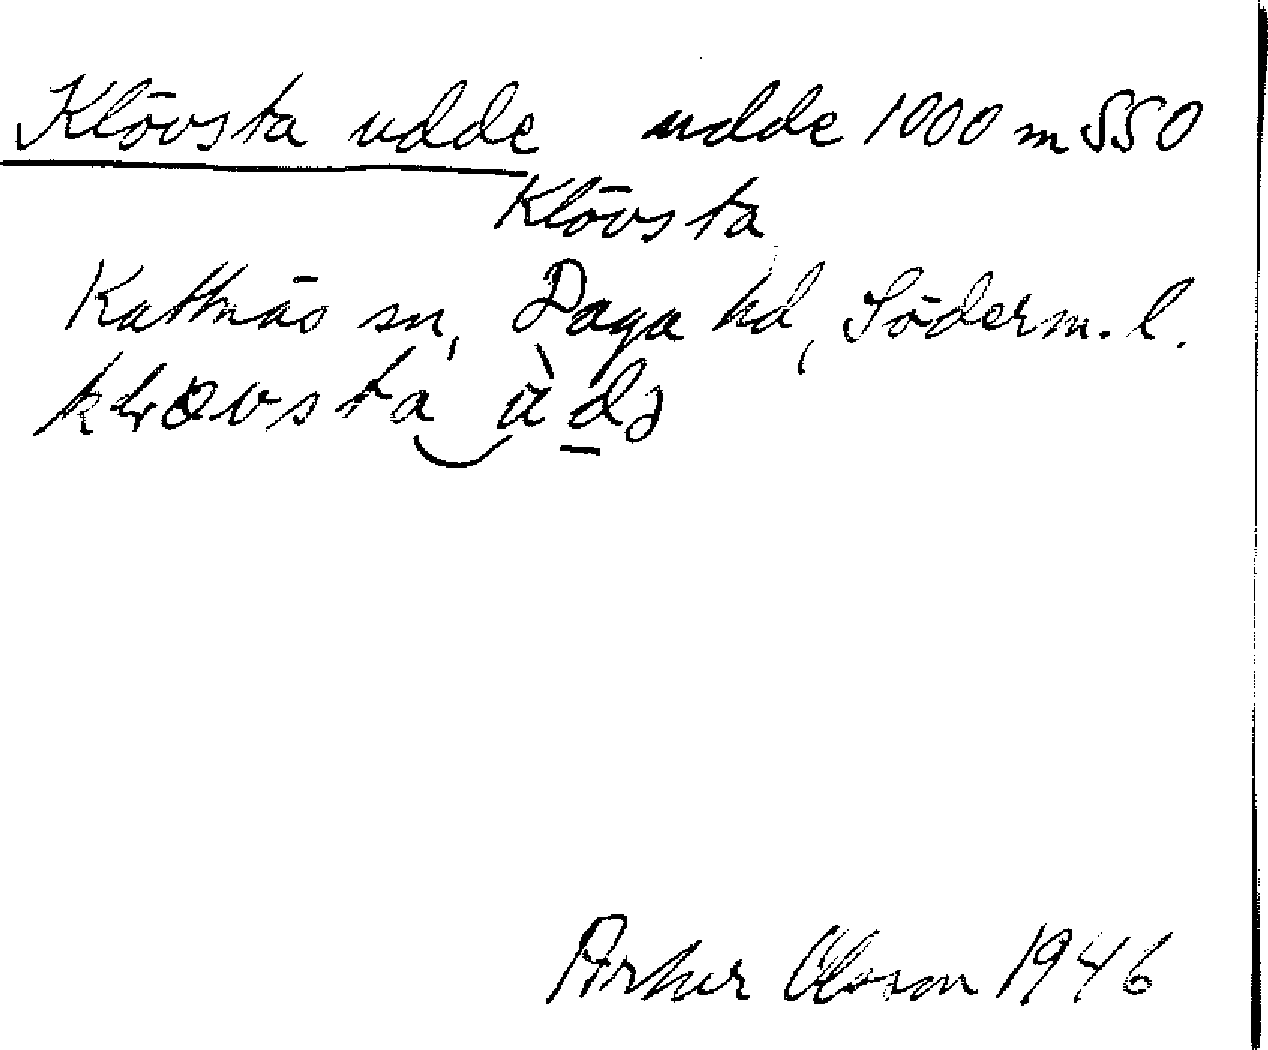 Klövsta udde udde 1000 m SSO
Klövsta
Kattnäs sn, Daga hd, Söderm. l.
Arthur Olsson 1946